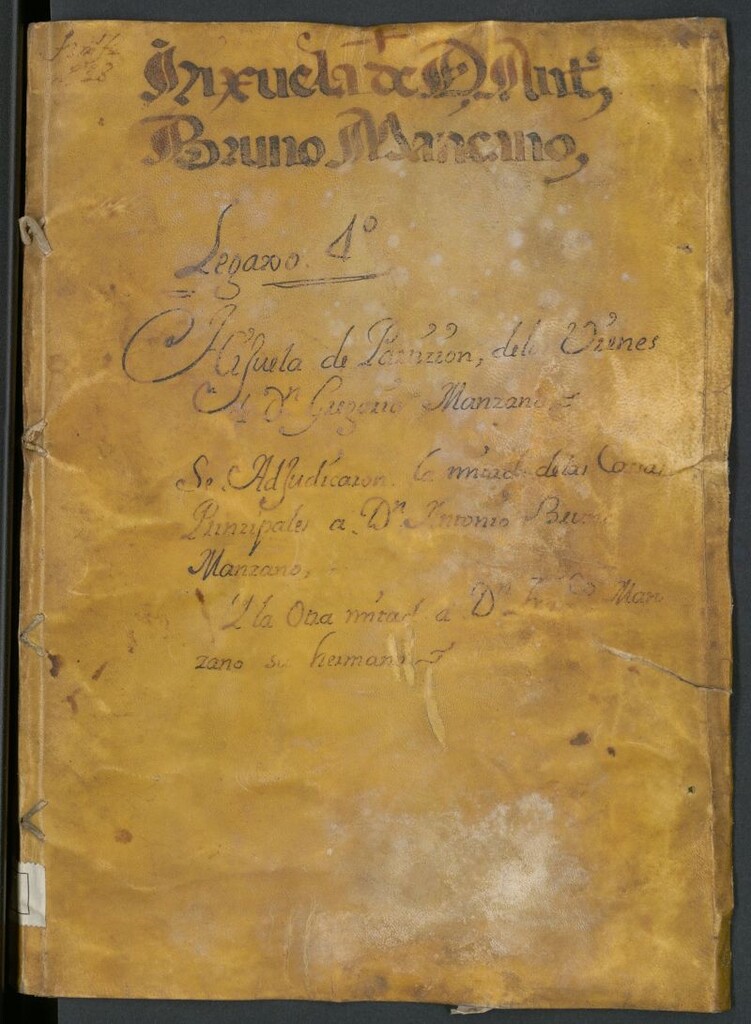 Hixuela de D. Antº,
Bruno Manzano,
Legaxo. 1º
Hijuela de Partizion, delos Vienes
de Dn Gregorio Manzano =
Se Adjudicaron. la mitad. delas Casas
Prinzipales a. Dn. Antonio Bruno
Manzano,
Y la Otra mitad a Dn. Frco Man
zano su hermano =